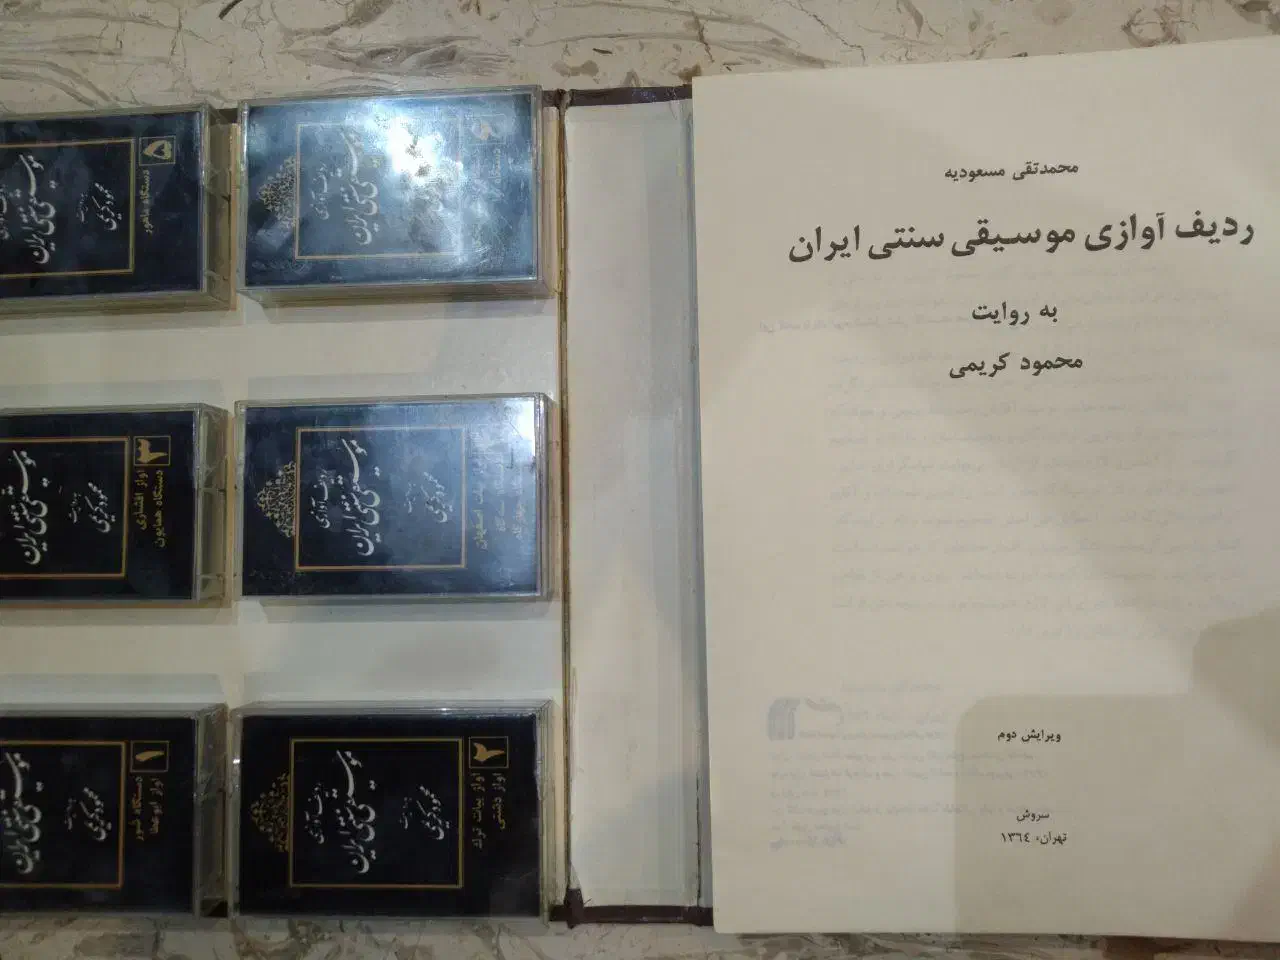 محمدتقی مسعودیه
ردیف آوازی موسیقی سنتی ایران
به روایت
محمود کریمی
ویرایش دوم
سروش
تهران، ١٣٦٤
۵
دستگاه ماهور
ردیف آوازی
موسیقی سنتی ایران
به روایت
محمود کریمی
۶
دستگاه
ردیف آوازی
موسیقی سنتی ایران
۳
آواز افشاری
دستگاه همایون
موسیقی سنتی ایران
به روایت
محمود کریمی
اصفهان
ردیف آوازی
موسیقی سنتی ایران
به روایت
محمود کریمی
۱
دستگاه شور
آواز ابوعطا
موسیقی سنتی ایران
به روایت
محمود کریمی
۲
آواز بیات ترک
آواز دشتی
ردیف آوازی
موسیقی سنتی ایران
به روایت
محمود کریمی